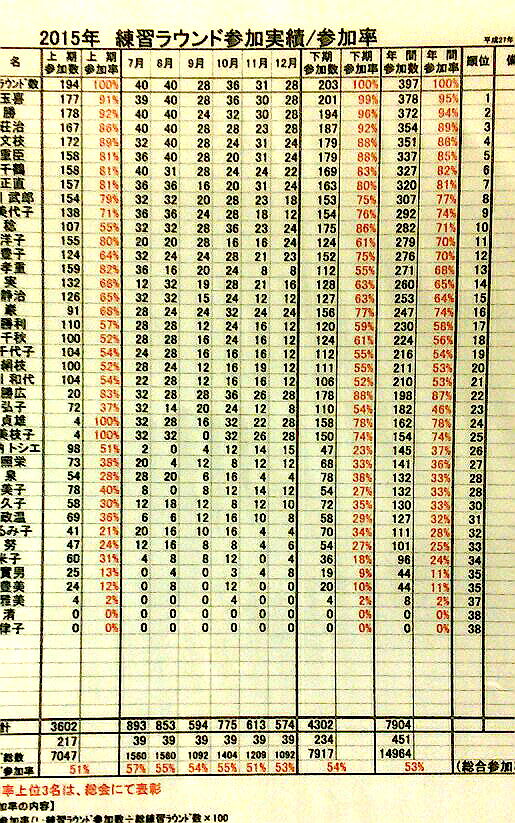 2015年 練習ラウンド参加実績/参加率
平成27年
名 上期参加数 上期参加率 7月 8月 9月 10月 11月 12月 下期参加数 下期参加率 年間参加数 年間参加率 順位 備
ラウンド数 194 100% 40 40 28 36 31 28 203 100% 397 100%
玉喜 177 91% 39 40 28 36 30 28 201 99% 378 95% 1
勝 178 92% 40 40 24 32 30 28 194 96% 372 94% 2
荘治 167 86% 40 40 28 28 23 28 187 92% 354 89% 3
文枝 172 89% 32 40 28 27 28 24 179 88% 351 88% 4
重臣 158 81% 36 40 28 20 31 24 179 88% 337 85% 5
千鶴 158 81% 40 31 28 24 24 22 169 83% 327 82% 6
正直 157 81% 36 36 16 20 31 24 163 80% 320 81% 7
武郎 154 79% 32 32 20 28 23 18 153 75% 307 77% 8
美代子 138 71% 36 36 24 28 18 12 154 76% 292 74% 9
稔 107 55% 32 32 28 36 23 24 175 86% 282 71% 10
洋子 155 80% 20 20 28 16 16 24 124 61% 279 70% 11
豊子 124 64% 32 24 24 28 21 23 152 75% 276 70% 12
孝重 159 82% 36 16 20 24 8 8 112 55% 271 68% 13
実 132 68% 12 32 19 28 21 16 128 63% 260 65% 14
静治 126 65% 32 32 15 24 12 12 127 63% 253 64% 15
巌 91 68% 28 24 24 32 24 24 156 77% 247 74% 16
勝利 110 57% 28 28 12 24 16 12 120 59% 230 58% 17
千秋 100 52% 28 28 16 24 16 12 124 61% 224 56% 18
千代子 104 54% 24 28 16 16 16 12 112 55% 216 54% 19
絹枝 100 52% 28 24 12 16 19 12 111 55% 211 53% 20
和代 104 54% 22 28 12 16 16 12 106 52% 210 53% 21
勝広 20 83% 32 28 28 36 26 28 178 88% 198 87% 22
弘子 72 37% 32 14 20 24 12 8 110 54% 182 46% 23
貞雄 4 100% 32 28 16 32 22 28 158 78% 162 78% 24
美枝子 4 100% 32 32 0 32 26 28 150 74% 154 74% 25
トシエ 98 51% 2 0 4 12 14 15 47 23% 145 37% 26
照栄 73 38% 20 4 12 8 12 12 68 33% 141 36% 27
泉 54 28% 28 20 6 16 4 4 78 38% 132 33% 28
美子 78 40% 8 0 8 12 14 12 54 27% 132 33% 28
久子 58 30% 12 18 12 8 12 10 72 35% 130 33% 30
政温 69 36% 6 6 12 16 10 8 58 29% 127 32% 31
るみ子 41 21% 20 16 10 16 4 4 70 34% 111 28% 32
努 47 24% 12 16 8 8 4 6 54 27% 101 25% 33
米子 60 31% 4 8 8 12 0 4 36 18% 96 24% 34
實男 25 13% 4 0 0 3 4 8 19 9% 44 11% 35
豊美 24 12% 0 8 0 12 0 0 20 10% 44 11% 35
雅美 4 2% 0 0 0 4 0 0 4 2% 8 2% 37
清 0 0% 0 0 0 0 0 0 0 0% 0 0% 38
律子 0 0% 0 0 0 0 0 0 0 0% 0 0% 38
計 3602 893 853 594 775 613 574 4302 7904
217 39 39 39 39 39 39 234 451
総数 7047 1560 1560 1092 1404 1209 1092 7917 14964
参加率 51% 57% 55% 54% 55% 51% 53% 54% 53% (総合参加
率上位3名は、総会にて表彰
加率の内容】
参加率(%:練習ラウンド参加数÷総練習ラウンド数×100